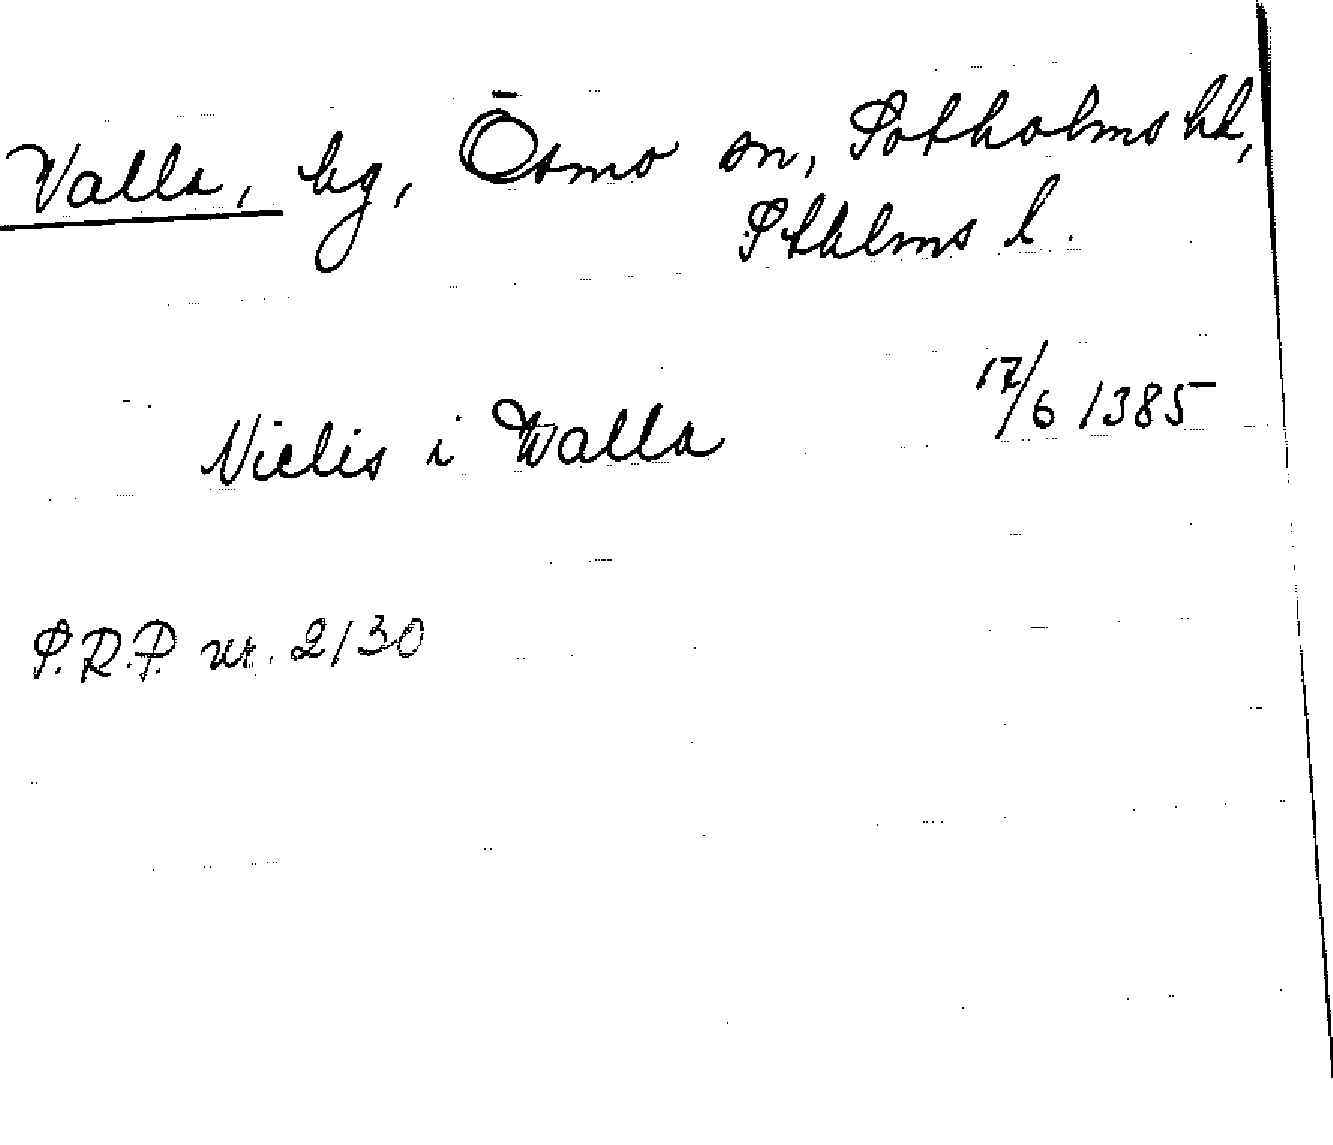 Valla, by, Ösmo sn, Sotholms hd,
Sthlms l.
Nielis i Walla 17/6 1385
S.R.P. nr. 2130